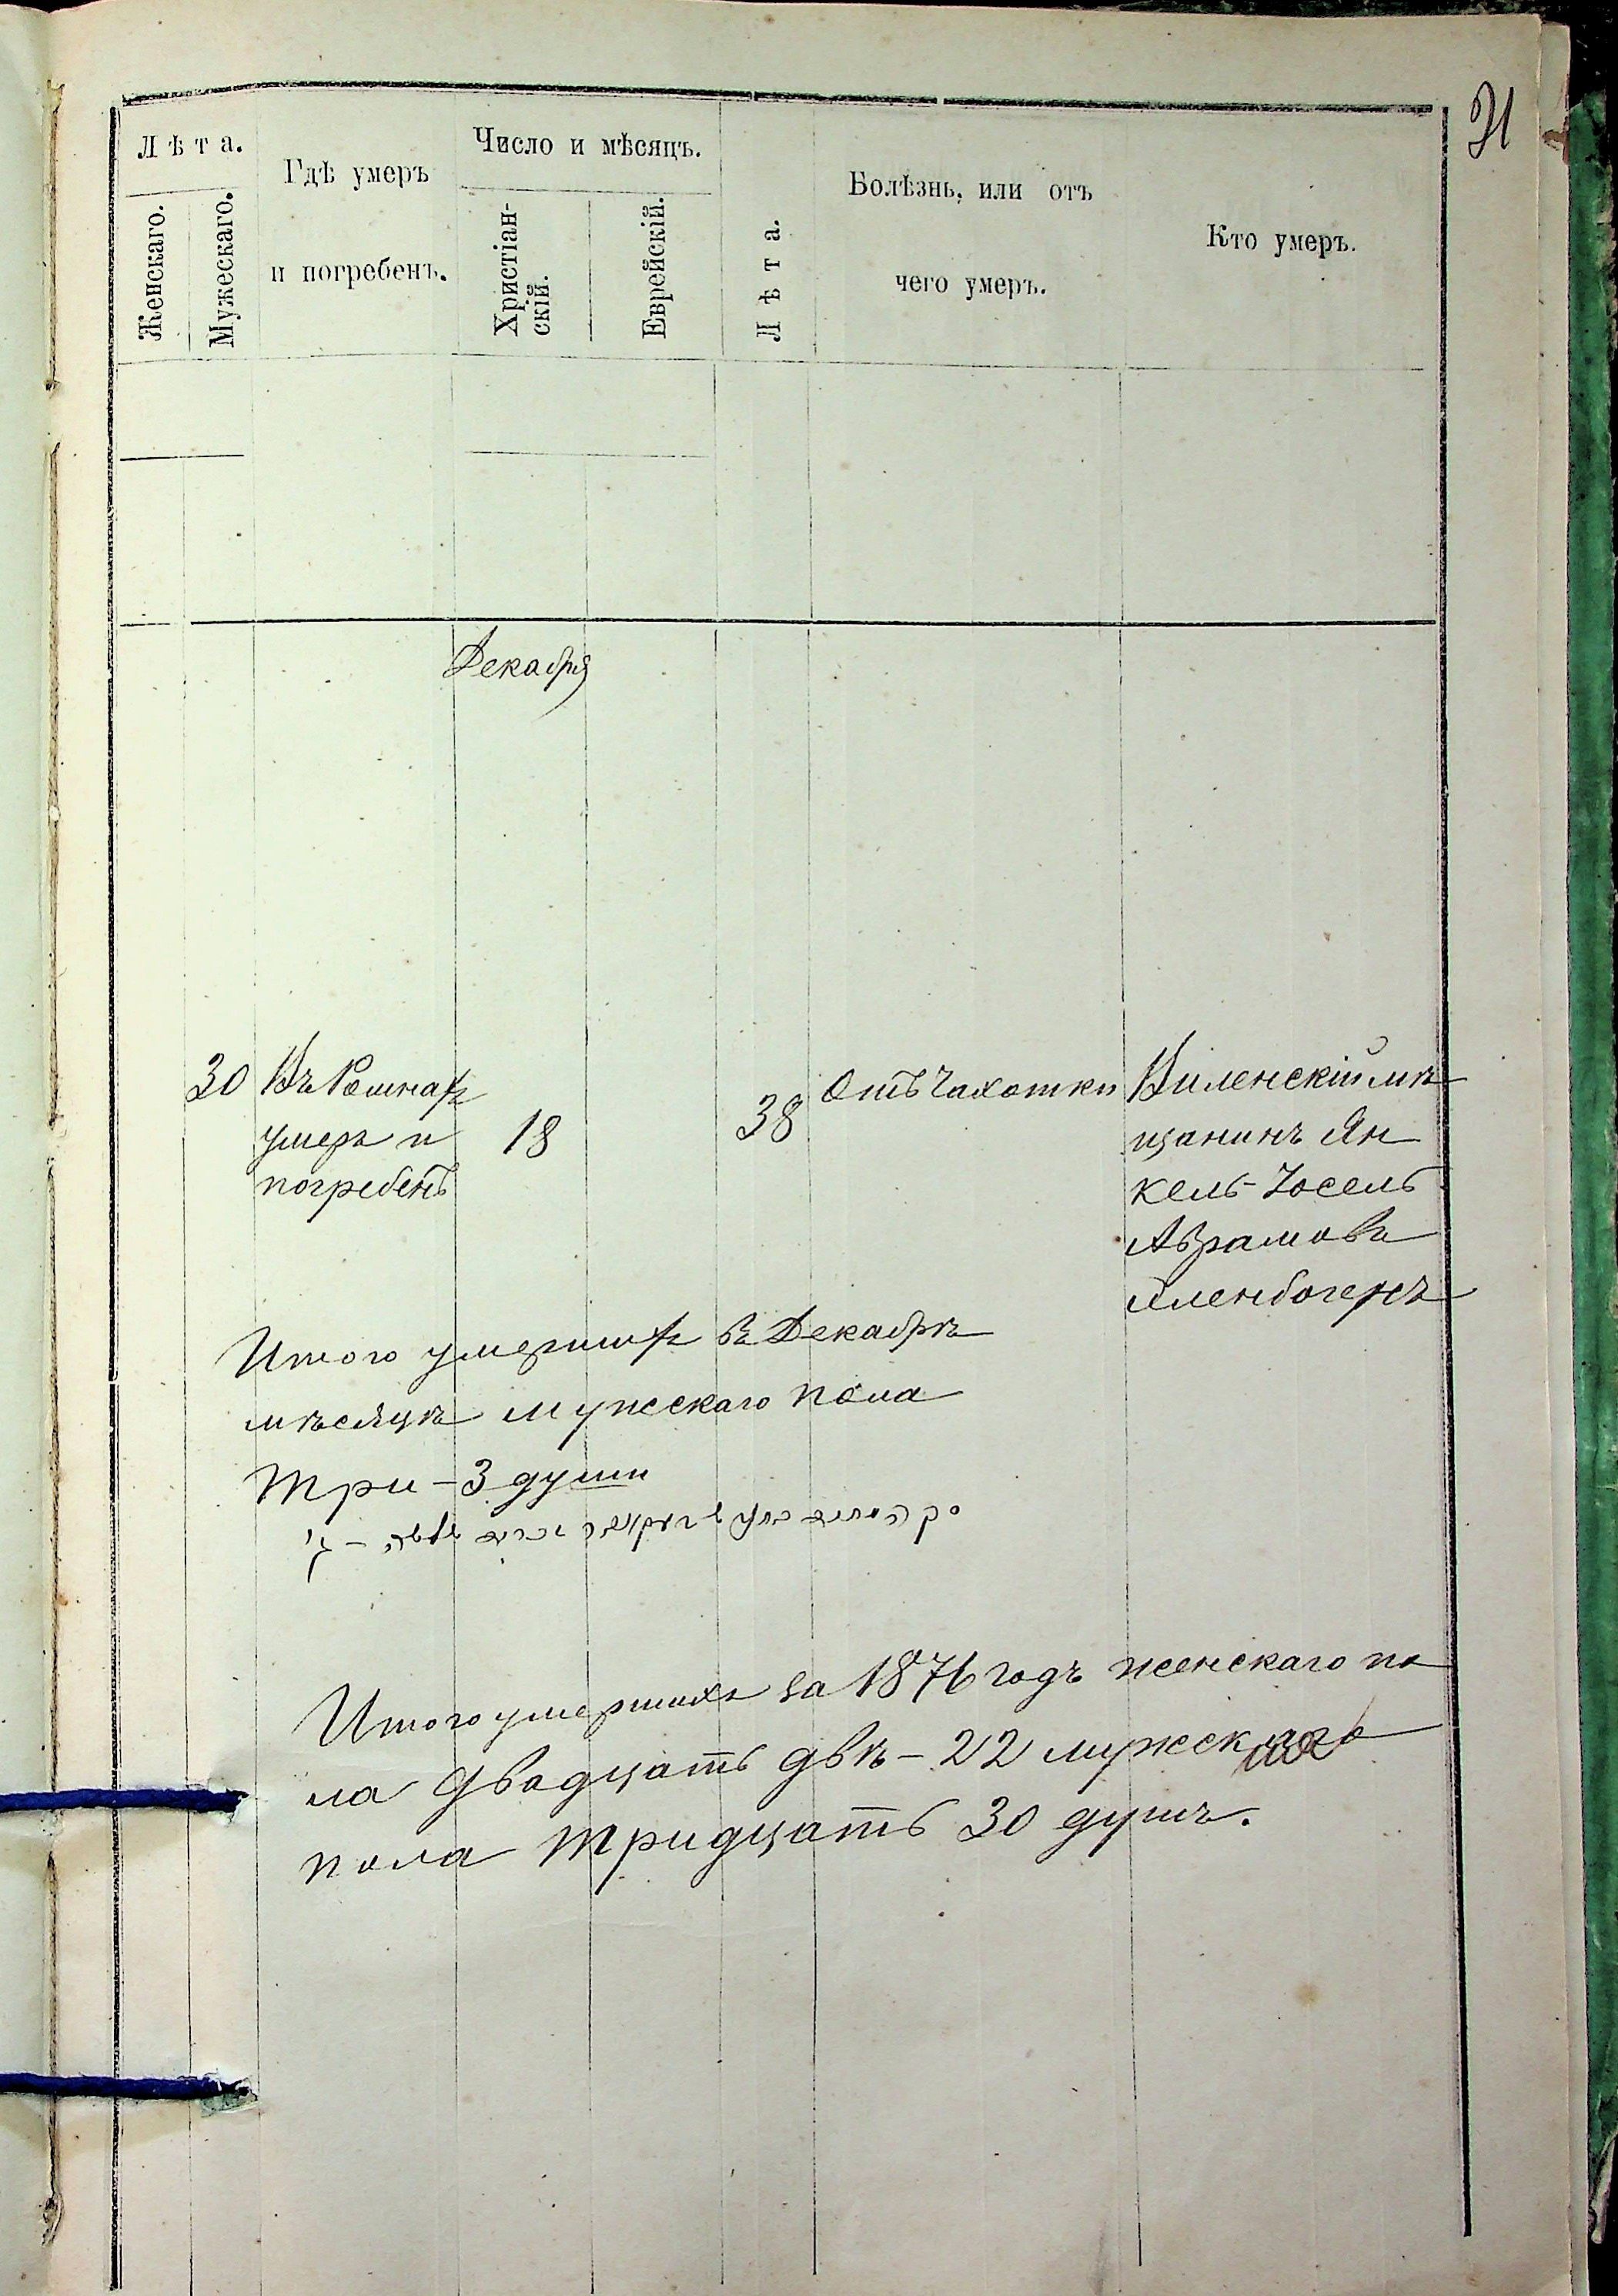 31
Лѣта.
Женскаго.
Мужескаго.
Гдѣ умеръ
и погребенъ.
Число и мѣсяцъ.
Христіан-
скій.
Еврейскій.
Лѣта.
Болѣзнь, или отъ
чего умеръ.
Кто умеръ.
Декабря
30 Въ Ромнах
умеръ и
погребенъ
18
38
Отъ чахотки
Виленскій мѣ
щанинъ Ян
кель-Іосель
Абрамовъ
Эленбогенъ
Итого умершихъ въ Декабрѣ
мѣсяцѣ мужскаго пола
три - 3 души
Итого умершихъ за 1876 годъ женскаго по
ла двадцать двѣ - 22 мужскаго
пола тридцать 30 душъ.